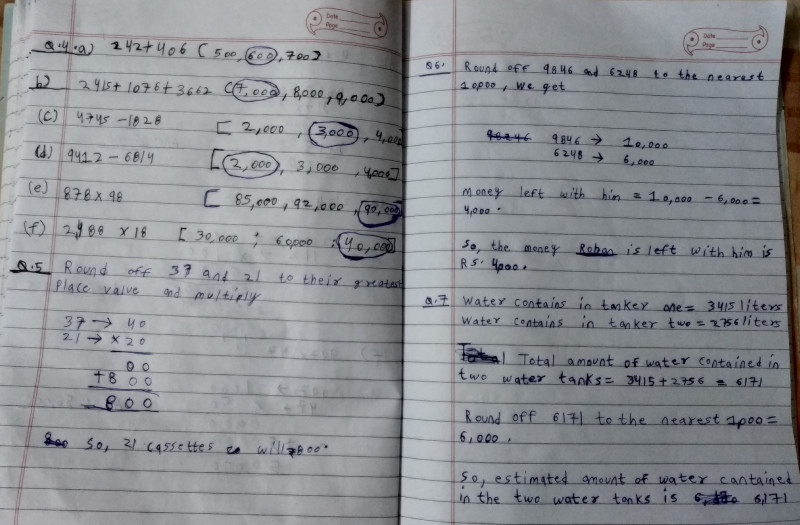 Date
Page
Q.4.a) 242+406 [500, 600, 700]
b) 2415+1076+3662 [7,000, 8,000, 9,000]
(c) 4745-1828 [2,000, 3,000, 4,000
(d) 9412-6814 [2,000, 3,000, 4,000]
(e) 878×98 [85,000, 92,000, 90,000
(f) 2,188 ×18 [30,000; 60,000; 40,000]
Q.5 Round off 37 and 21 to their greatest
Place value and multiply
37→ 40
21→ ×20
00
+800
800
So, 21 cassettes will 800.
Date
Page
Q6. Round off 9846 and 6248 to the nearest
1000, we get
9846 → 10,000
6248 → 6,000
Money left with him = 10,000 - 6,000=
4,000.
So, the money Rohan is left with him is
RS. 4000.
Q.7 Water contains in tanker one= 3415 liters
Water contains in tanker two=2756 liters
Total amount of water contained in
two water tanks= 3415+2756 = 6171
Round off 6171 to the nearest 1000=
6,000.
So, estimated amount of water cantained
in the two water tanks is 6,171